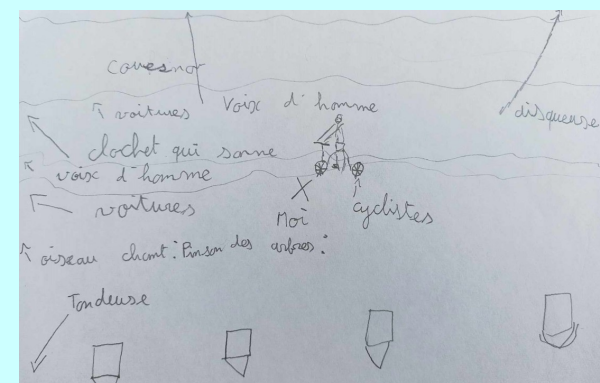 Couesnon
voitures
Voix d'homme
disqueuse
clochet qui sonne
voix d'homme
voitures
Moi
cyclistes
oiseau chant : Pinson des arbres :
Tondeuse